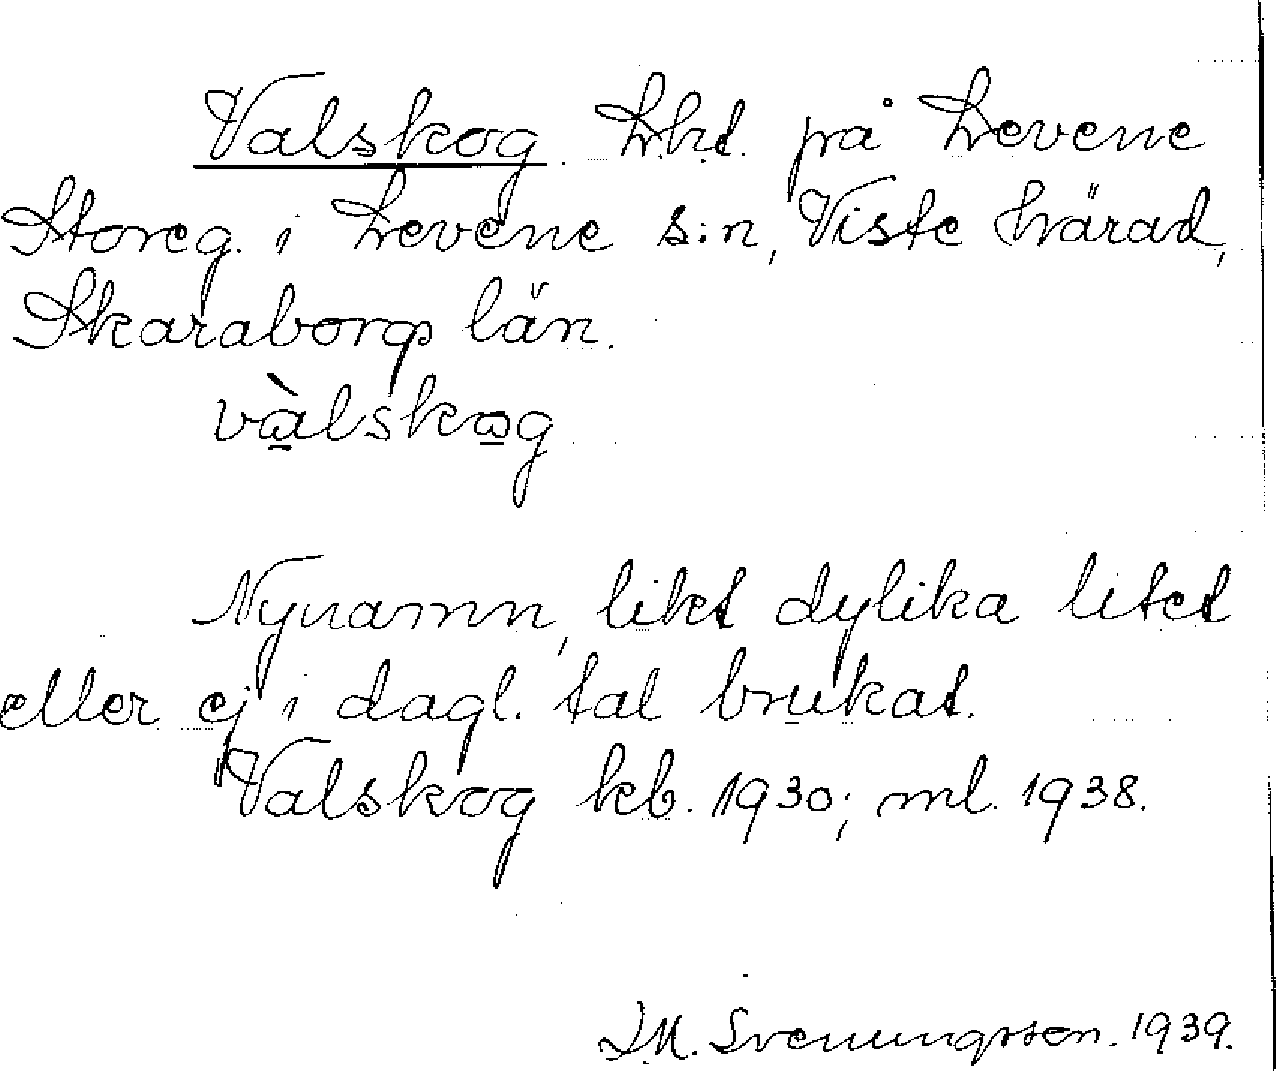 Valskog. Lht. på Levene
Storeg. i Levene s:n, Viste härad,
Skaraborgs län.
vàlskog
Nynamn, likt dylika litet
eller ej i dagl. tal brukat.
Valskog kb. 1930; ml. 1938.
I.M. Svenungsson. 1939.